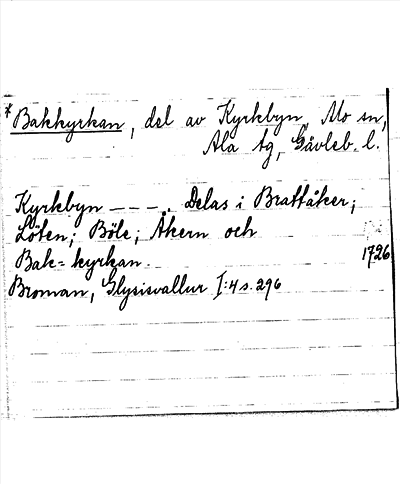 * Bakkyrkan, del av Kyrkbyn, Mo sn,
Ala tg, Gävleb. l.
Kyrkbyn – – –. Delas i Brattåker;
Löten; Böle; Åkern och
Bak-kyrkan. 1726
Broman, Glysisvallur I:4 s. 296